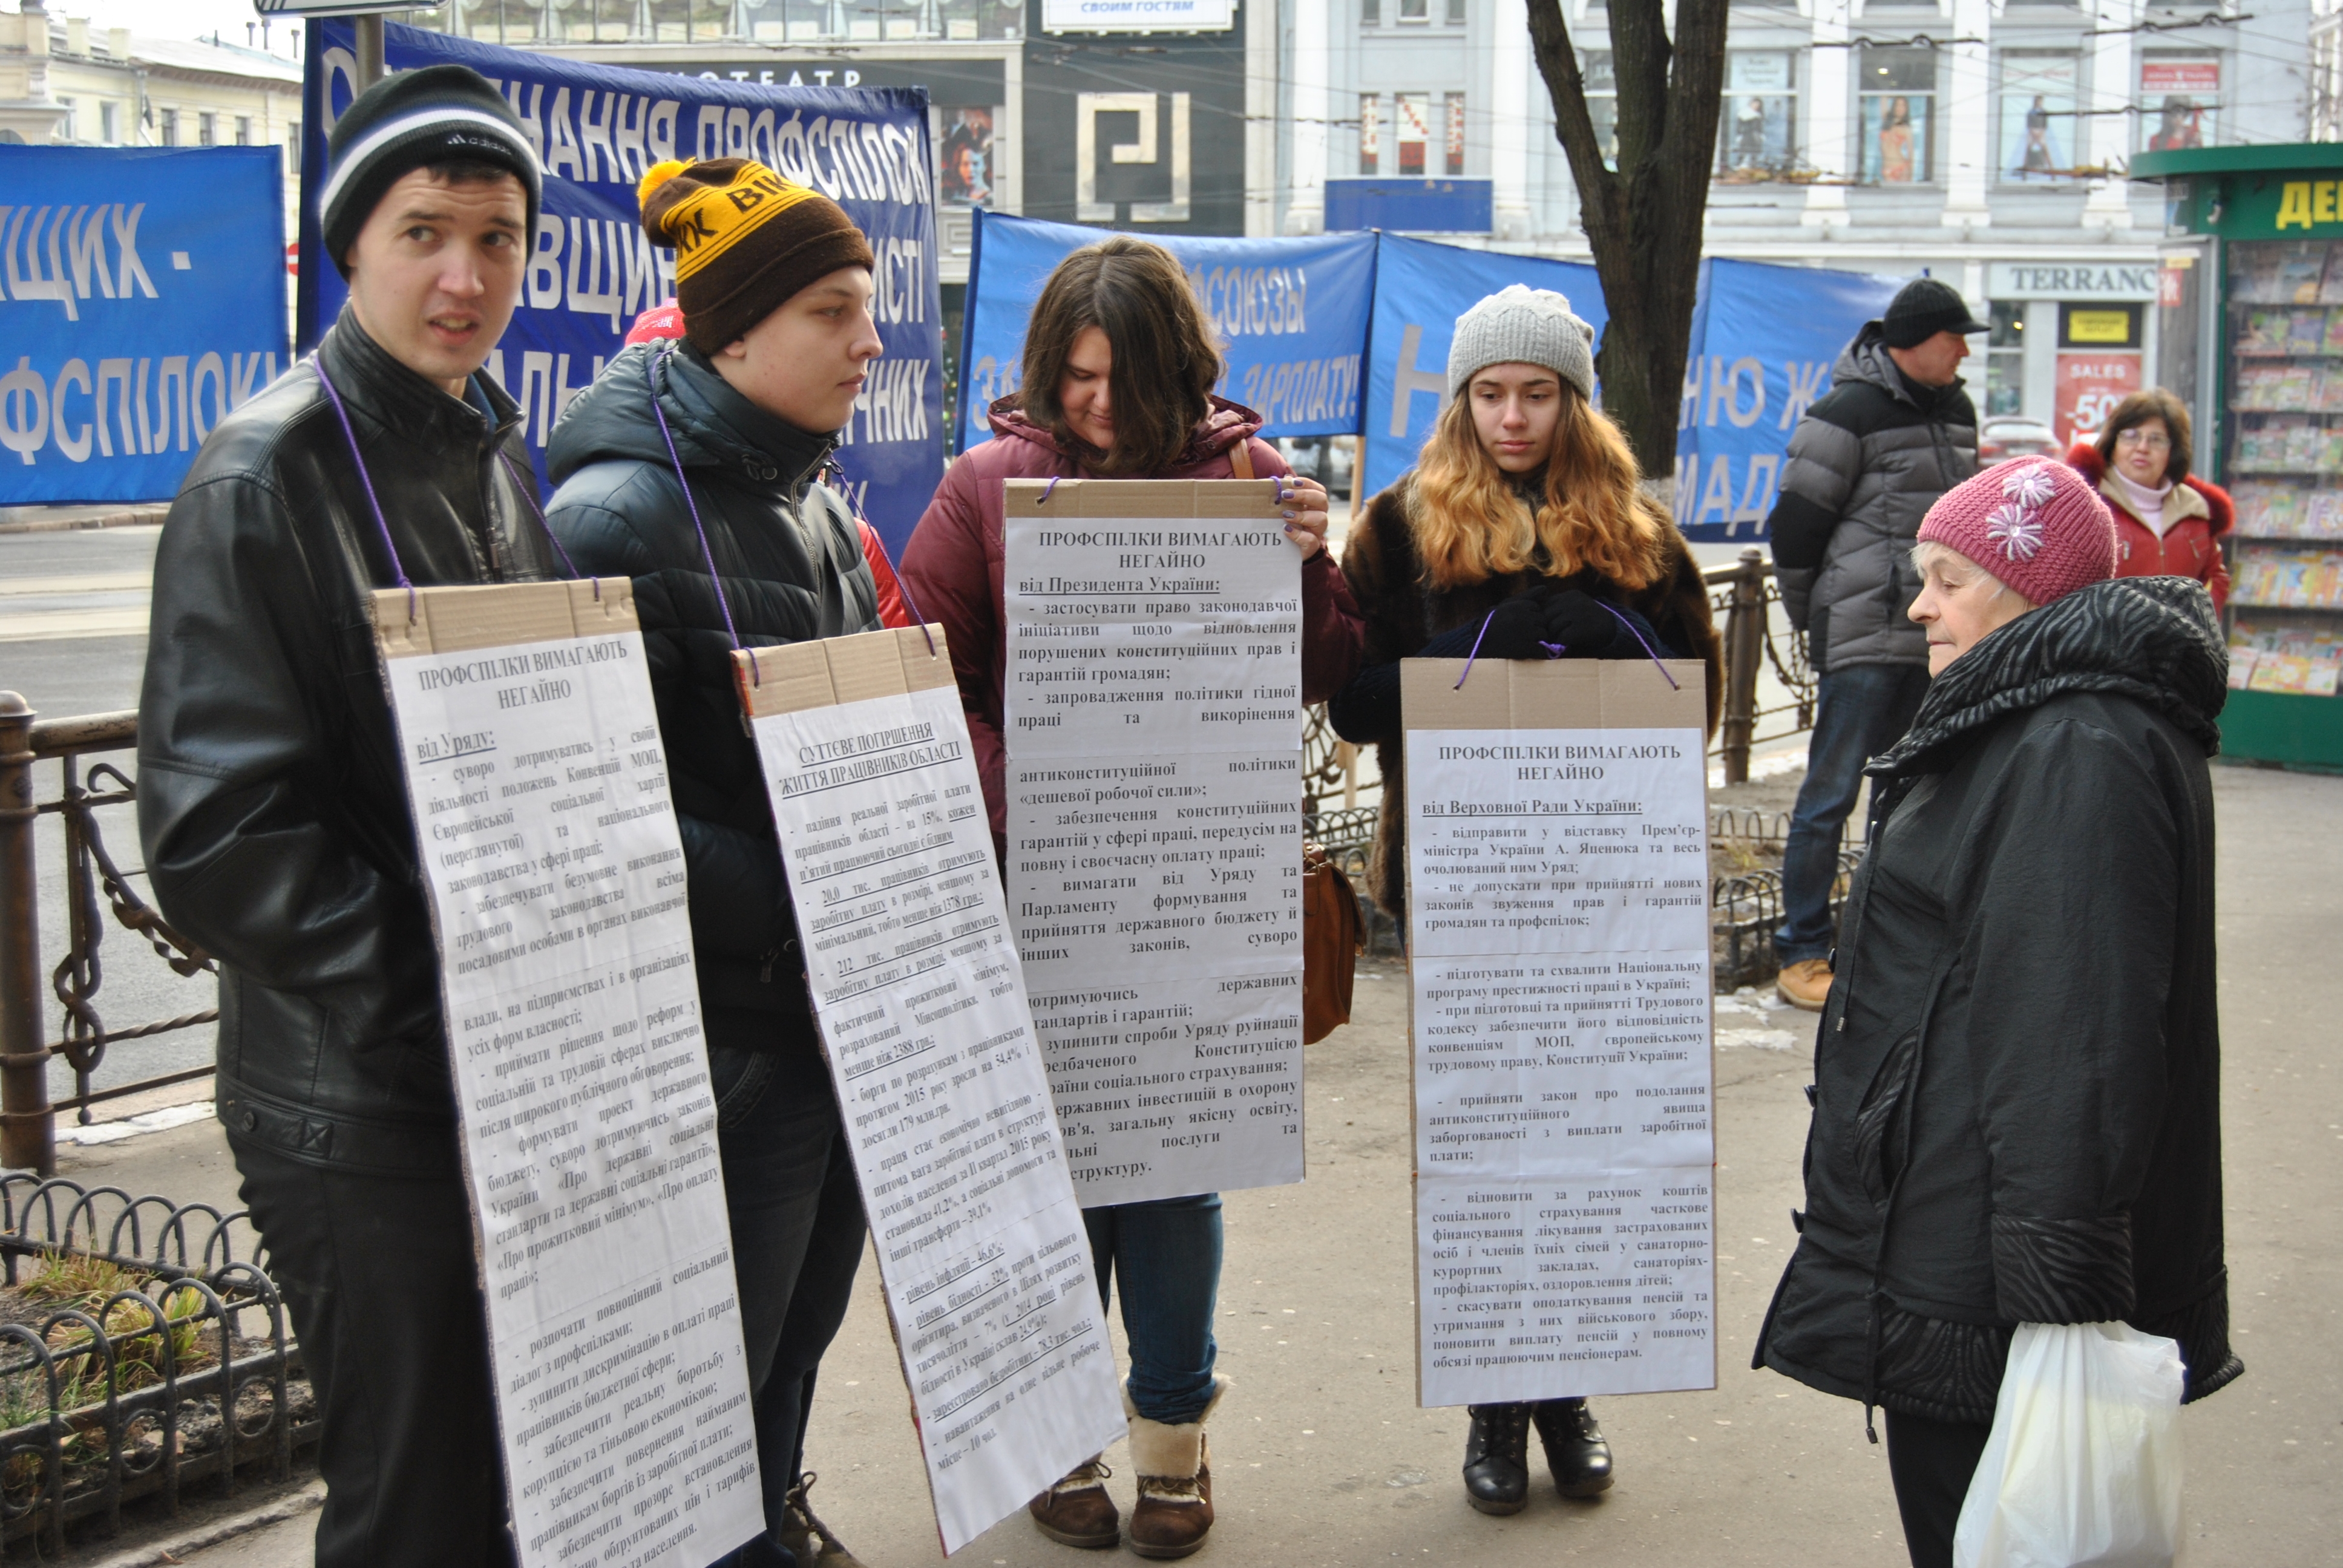 СВОИМ ГОСТЯМ
НОТЕАТР
НАННЯ ПРОФСПІЛОК
ЩИХ -
ФСПІЛОК!
adidas
ВІК
СОЮЗЫ
ЗАРПЛАТУ!
НЮ Ж
МАД
TERRANC
SALES
-50
ДЕ
ПРОФСПІЛКИ ВИМАГАЮТЬ
НЕГАЙНО
від Уряду:
- суворо дотримуватись у своїй
діяльності положень Конвенцій МОП,
Європейської соціальної хартії
(переглянутої) та національного
законодавства у сфері праці;
- забезпечувати безумовне виконання
трудового законодавства всіма
посадовими особами в органах виконавчої
влади, на підприємствах і в організаціях
усіх форм власності;
- приймати рішення щодо реформ у
соціальній та трудовій сферах виключно
після широкого публічного обговорення;
- формувати проект державного
бюджету, суворо дотримуючись законів
України «Про державні соціальні
стандарти та державні соціальні гарантії»,
«Про прожитковий мінімум», «Про оплату
праці»;
- розпочати повноцінний соціальний
діалог з профспілками;
- зупинити дискримінацію в оплаті праці
працівників бюджетної сфери;
- забезпечити реальну боротьбу з
корупцією та тіньовою економікою;
- забезпечити повернення найманим
працівникам боргів із заробітної плати;
- забезпечити прозоре встановлення
обґрунтованих цін і тарифів
та населення.
СУТТЄВЕ ПОГІРШЕННЯ
ЖИТТЯ ПРАЦІВНИКІВ ОБЛАСТІ
- падіння реальної заробітної плати
працівників області – на 15%, кожен
п'ятий працюючий сьогодні є бідним
- 20,0 тис. працівників отримують
заробітну плату в розмірі, меншому за
мінімальний, тобто менше ніж 1378 грн.;
- 212 тис. працівників отримують
заробітну плату в розмірі, меншому за
фактичний прожитковий мінімум,
розрахований Мінсоцполітики, тобто
менше ніж 2388 грн.;
- борги по розрахункам з працівниками
протягом 2015 року зросли на 54,4% і
досягли 179 млн.грн.
- праця стає економічно невигідною -
питома вага заробітної плати в структурі
доходів населення за ІІ квартал 2015 року
становила 41,2%, а соціальні допомоги та
інші трансферти – 39,1%
- рівень інфляції – 46,6%;
- рівень бідності – 32% проти цільового
орієнтира, визначеного в Цілях розвитку
тисячоліття – 7% (у 2014 році рівень
бідності в Україні склав 24,9%);
- зареєстровано безробітних – 78,3 тис. чол.;
- навантаження на одне вільне робоче
місце – 10 чол.
ПРОФСПІЛКИ ВИМАГАЮТЬ
НЕГАЙНО
від Президента України:
- застосувати право законодавчої
ініціативи щодо відновлення
порушених конституційних прав і
гарантій громадян;
- запровадження політики гідної
праці та викорінення
антиконституційної політики
«дешевої робочої сили»;
- забезпечення конституційних
гарантій у сфері праці, передусім на
повну і своєчасну оплату праці;
- вимагати від Уряду та
Парламенту формування та
прийняття державного бюджету й
інших законів, суворо
дотримуючись державних
тандартів і гарантій;
зупинити спроби Уряду руйнації
редбаченого Конституцією
раїни соціального страхування;
ержавних інвестицій в охорону
ов'я, загальну якісну освіту,
льні послуги та
структуру.
ПРОФСПІЛКИ ВИМАГАЮТЬ
НЕГАЙНО
від Верховної Ради України:
- відправити у відставку Прем'єр-
міністра України А. Яценюка та весь
очолюваний ним Уряд;
- не допускати при прийнятті нових
законів звуження прав і гарантій
громадян та профспілок;
- підготувати та схвалити Національну
програму престижності праці в Україні;
- при підготовці та прийнятті Трудового
кодексу забезпечити його відповідність
конвенціям МОП, європейському
трудовому праву, Конституції України;
- прийняти закон про подолання
антиконституційного явища
заборгованості з виплати заробітної
плати;
- відновити за рахунок коштів
соціального страхування часткове
фінансування лікування застрахованих
осіб і членів їхніх сімей у санаторно-
курортних закладах, санаторіях-
профілакторіях, оздоровлення дітей;
- скасувати оподаткування пенсій та
утримання з них військового збору,
поновити виплату пенсій у повному
обсязі працюючим пенсіонерам.